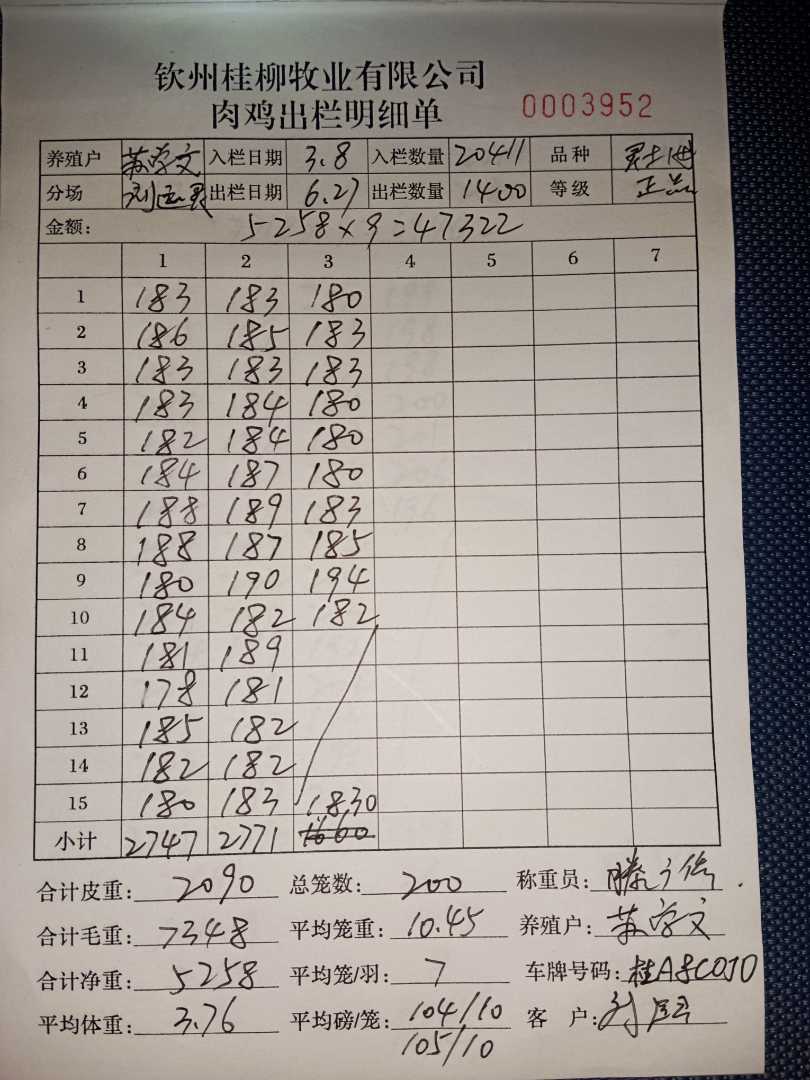 钦州桂柳牧业有限公司
肉鸡出栏明细单 0003952
养殖户 苏学文 入栏日期 3.8 入栏数量 20411 品种
分场 出栏日期 6.27 出栏数量 1400 等级 正品
金额: 5258×9=47322
1 2 3 4 5 6 7
1 183 183 180
2 186 185 183
3 183 183 183
4 183 184 180
5 182 184 180
6 184 187 180
7 188 189 183
8 188 187 185
9 180 190 194
10 184 182 182
11 181 189
12 178 181
13 185 182
14 182 182
15 180 183 1830
小计 2747 2771
合计皮重: 2090 总笼数: 200 称重员:
合计毛重: 7348 平均笼重: 10.45 养殖户: 苏学文
合计净重: 5258 平均笼/羽: 7 车牌号码:
平均体重: 3.76 平均磅/笼: 104/10 客 户:
105/10